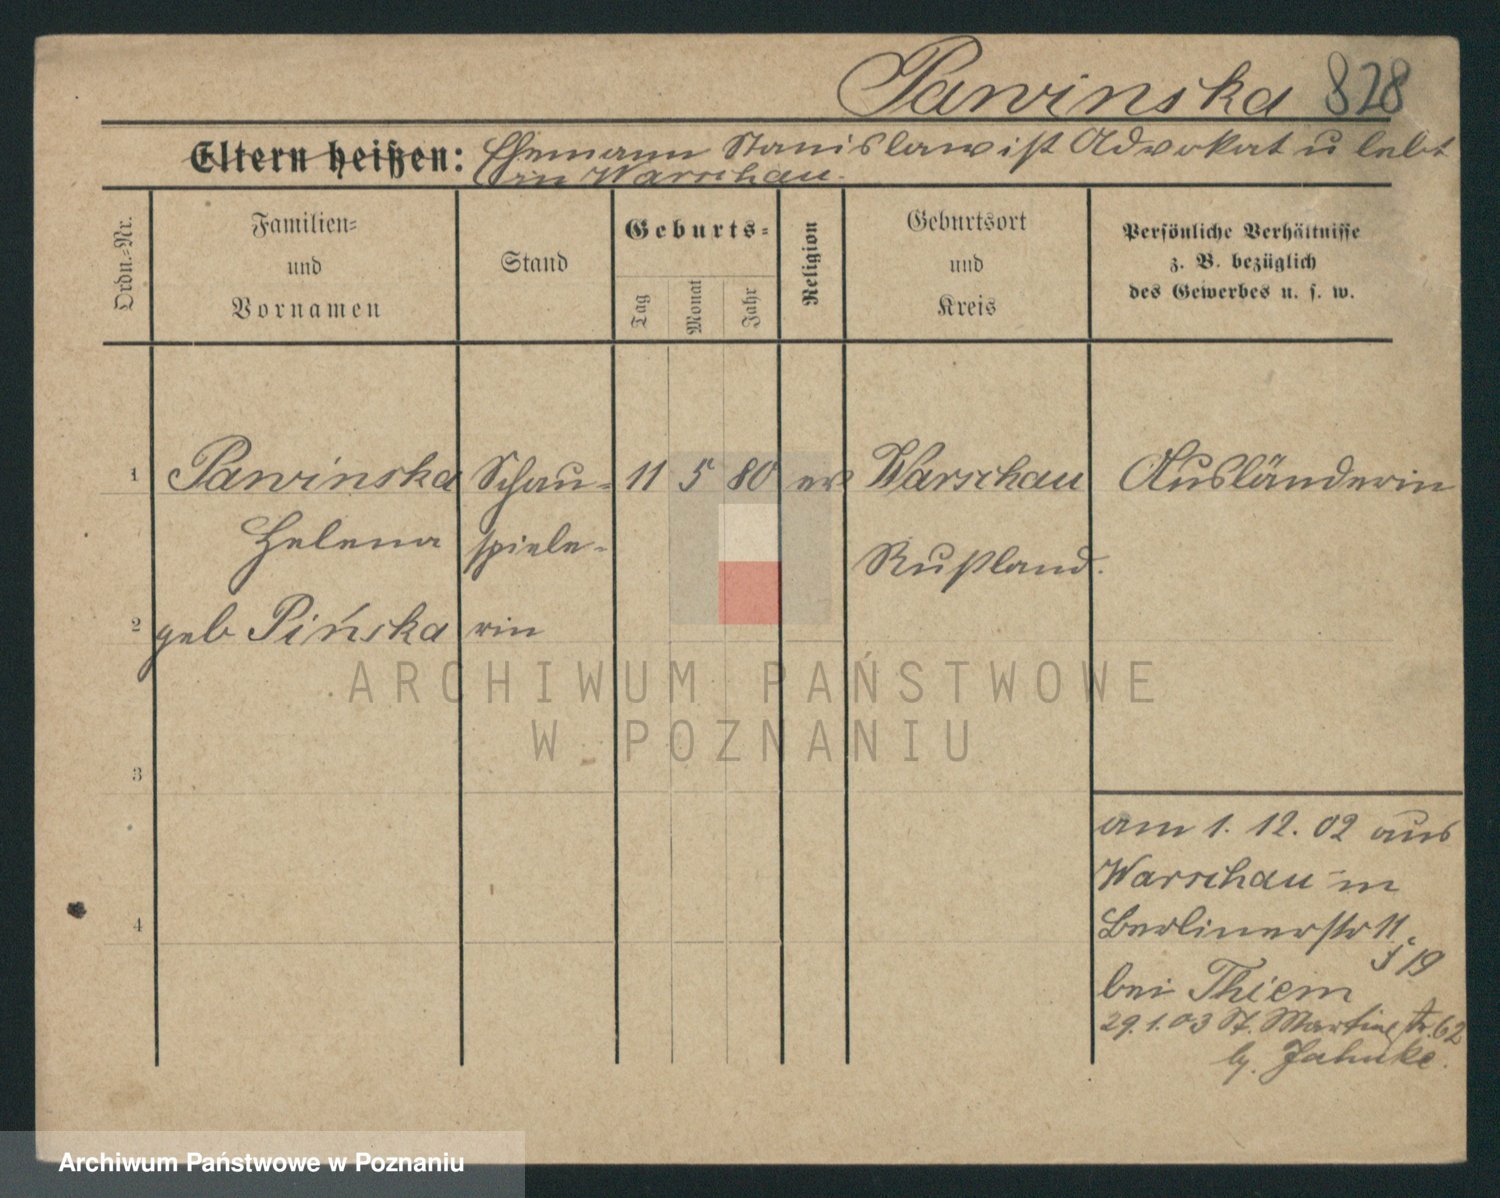 Pawinska 828
Eltern heißen: Ehemann Stanislaw ist Advokat u lebt
in Warschau.
Ordn.-Nr.
Familien-
und
Vornamen
Stand
Geburts-
Tag
Monat
Jahr
Religion
Geburtsort
und
Kreis
Persönliche Verhältnisse
z. B. bezüglich
des Gewerbes u. s. w.
1 Pawinska Schau- 11 5 80 ev Warschau Ausländerin
Helena spiele- Rußland.
2 geb Pińska rin
ARCHIWUM PAŃSTWOWE
W POZNANIU
3
am 1. 12. 02 aus
Warschau in
4 Berlinerstr 11
19
bei Thiem
29.1.03 St. Martinstr. 62
b. Jahnke.
Archiwum Państwowe w Poznaniu